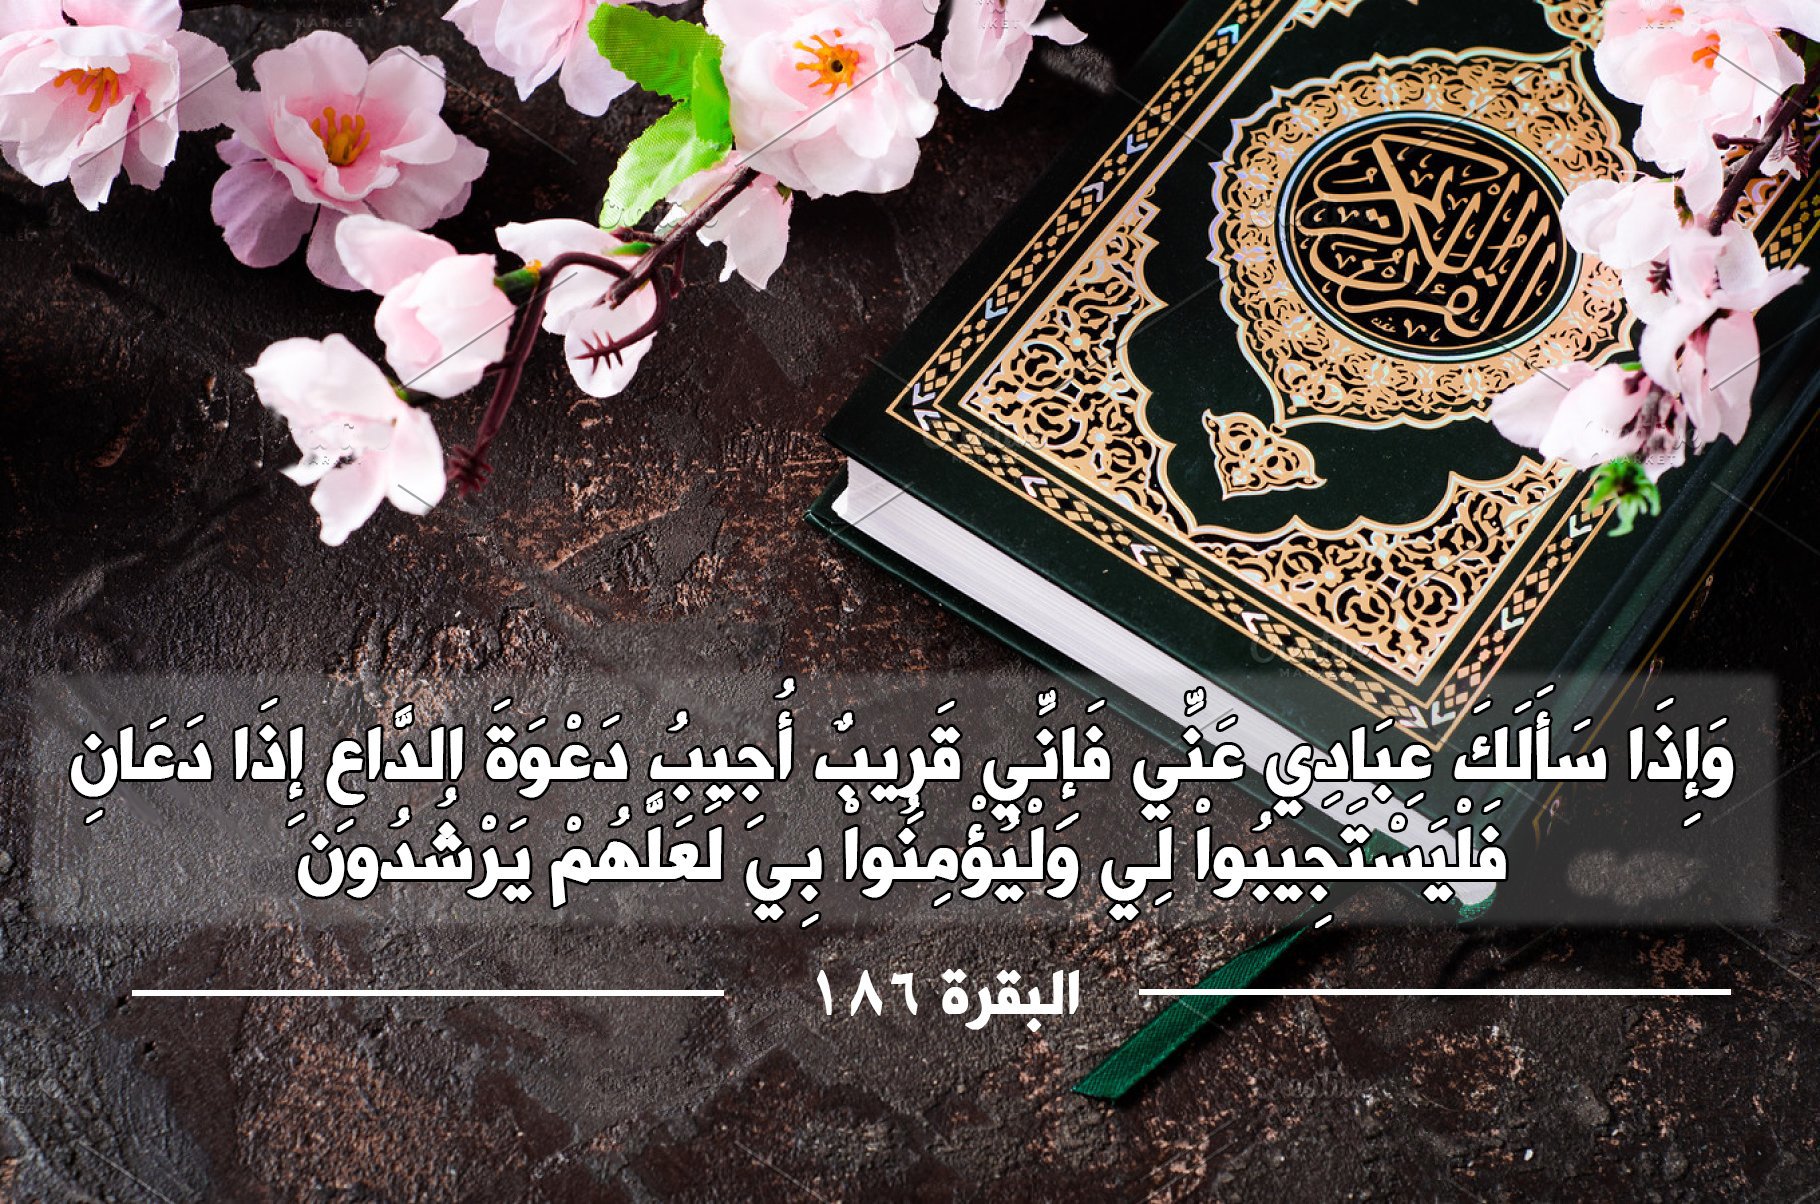 القرآن الكريم
وَإِذَا سَأَلَكَ عِبَادِي عَنِّي فَإِنِّي قَرِيبٌ أُجِيبُ دَعْوَةَ الدَّاعِ إِذَا دَعَانِ
فَلْيَسْتَجِيبُواْ لِي وَلْيُؤْمِنُواْ بِي لَعَلَّهُمْ يَرْشُدُونَ
البقرة ١٨٦